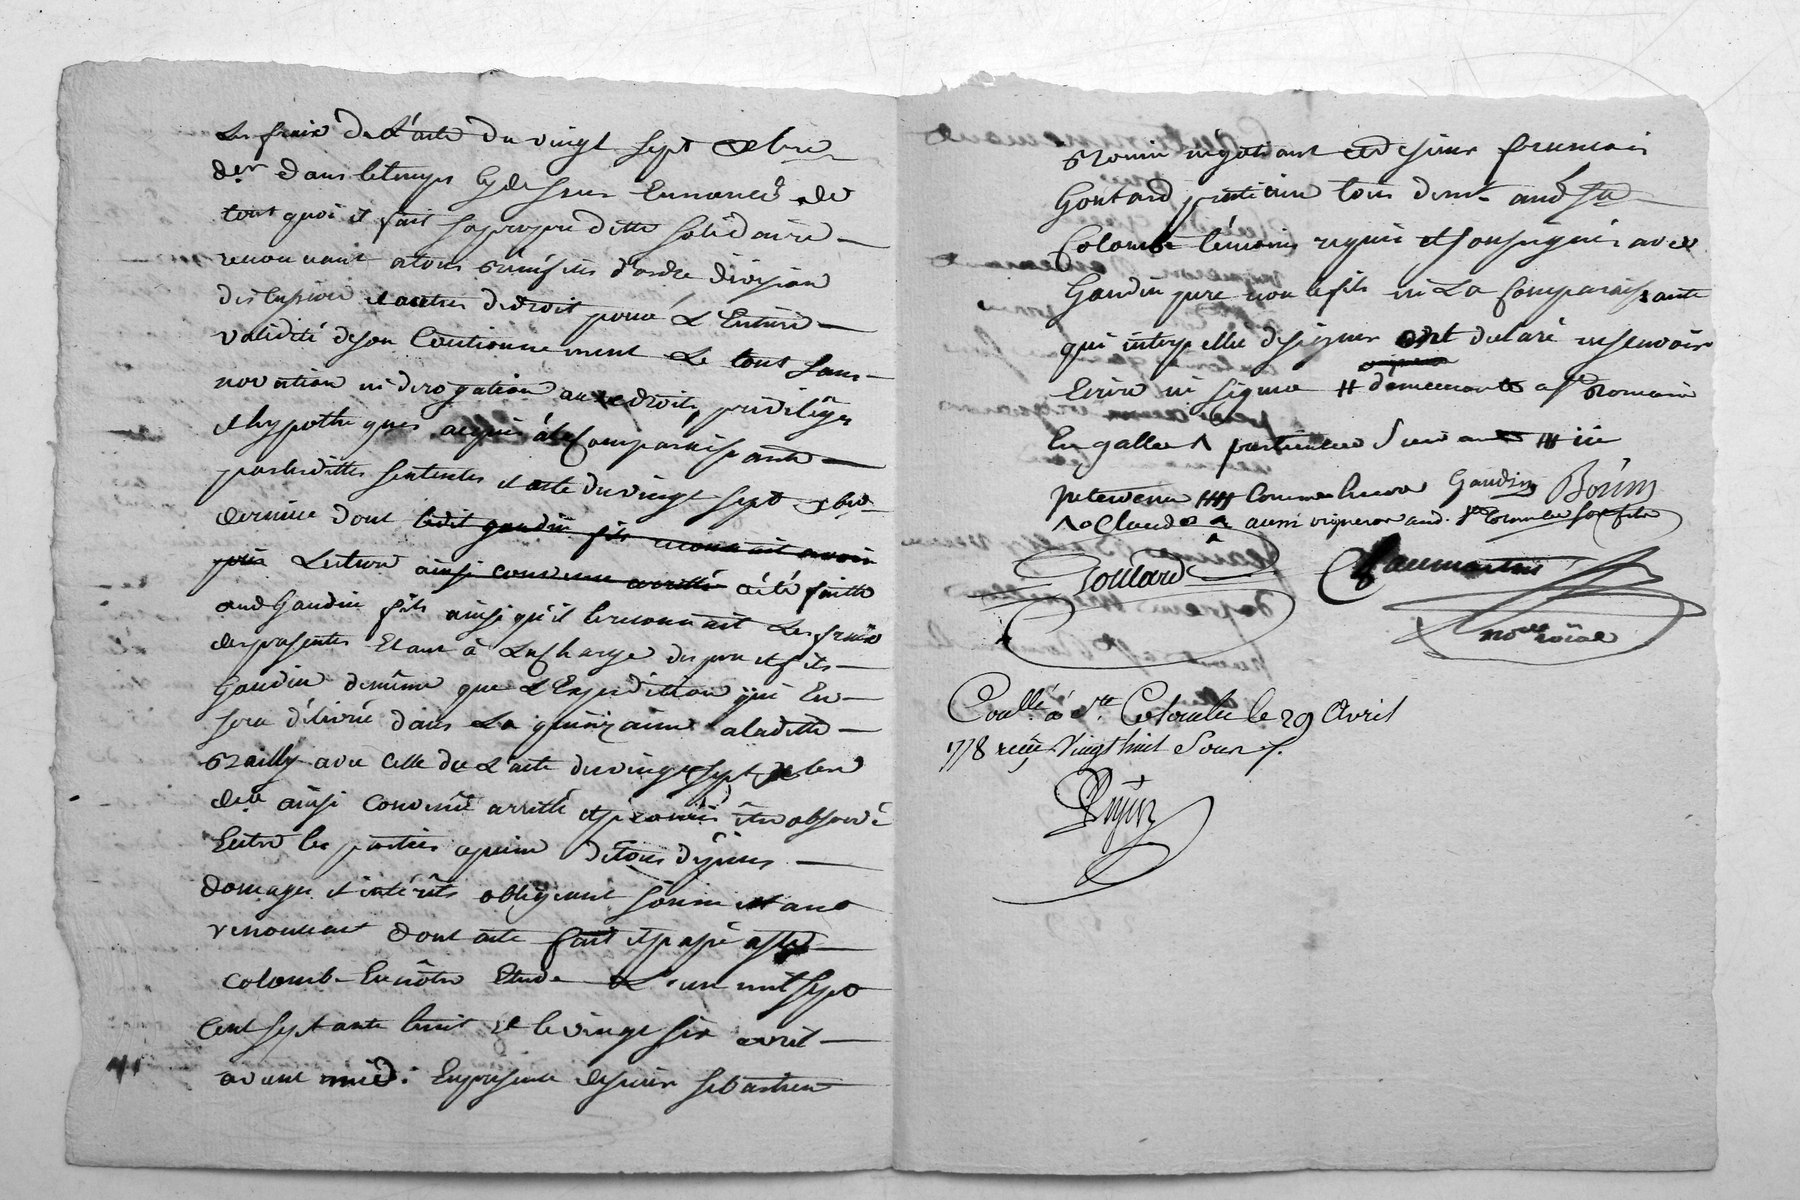 Les frais de L'acte du vingt sept xbre
der dans le temps cy dessus Ennoncés de
tout quoi il fait sa propre dette solidaire
renoncant a tous bénéfices d'ordre division
discusion et autres de droit pour L'Entiere
validité de son Cautionnement Le tout sans
novation ni derogation aux droits privilèges
et hypotheques acquis à la Comparaissante
par lesdittes sentences et acte du vingt sept xbre
dernier dont ledit gaudin fils reconnait avoir
pris Lecture ainsi convenu arretté a été faitte
aud Gaudin fils ainsi qu'il le reconnait Les frais
des presentes Etant à La Charge des pere et fils
Gaudin de même que L'Expedition qui En
sera délivré dans La quinzaine a laditte
Brailly avec celle de L'acte du vingt sept xbre
der ainsi convenu arretté et promis être observé
Entre les parties a peine de tous dépens
domages et intérêts obligeant soumettant
renoncant dont acte fait et passé a Ste
Colombe En nôtre Etude L'an mil sept
cent septante huit et le vingt six avril
avant midi En presence de sieur sebastien
Bonin négotiant et de sieur francois
Goutard praticien tous demt aud Ste
Colombe témoins requis et soussignés avec
Gaudin pere non le fils ni La Comparaissante
qui interpellés de signer ont declaré ne scavoir
Ecrire ni signer # demeurante a St Romain
En galle ^ particuliere sieur #
intervenu #
^ a Claude aussi vigneron aud. Ste Colombe son fils
Gaudin Bonin
Goutard
notre roïal
Conllé à Ste Colombe le 29 Avril
1778 reçu Vingt huit Sous